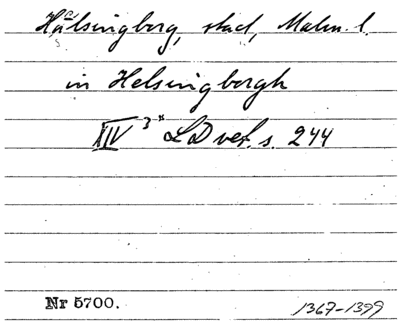 Hälsingborg, stad, Malm. l.
in Helsingborgh
XIV 3" LD vet. s. 244
Nr 5700.
1367-1399